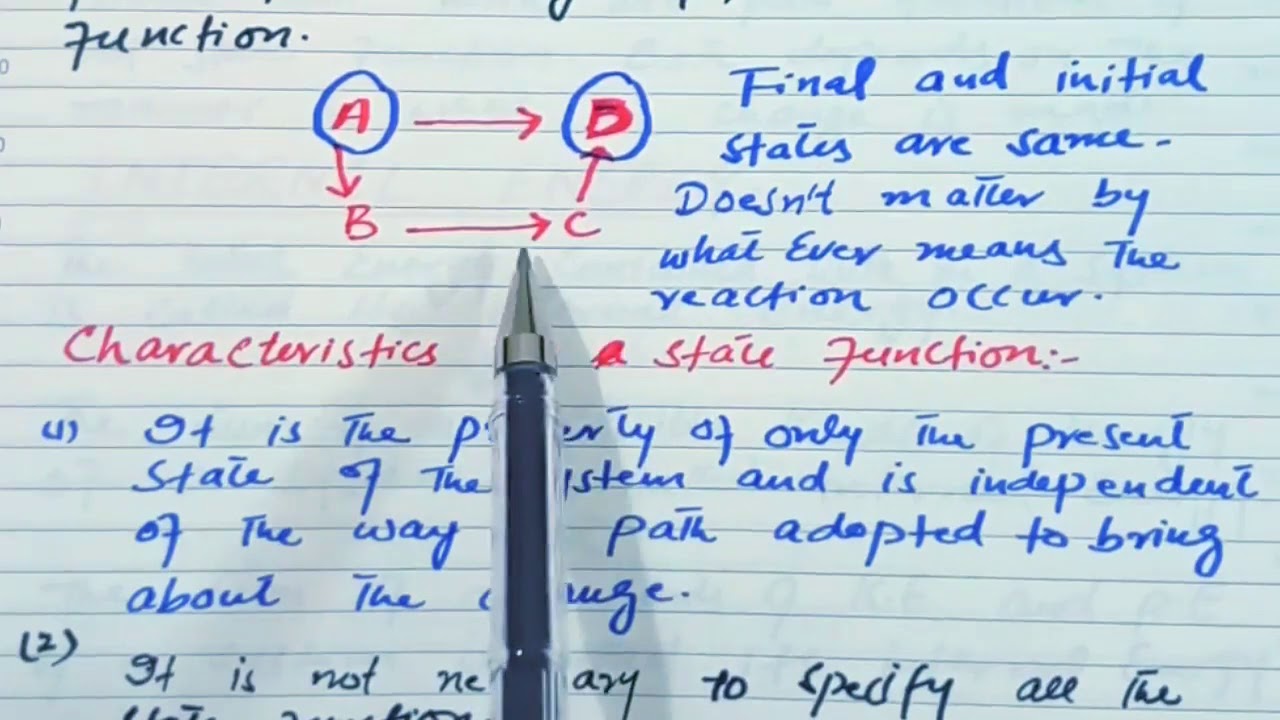 Function.
A → D
B → C
Final and initial
states are same.
Doesn't matter by
what Ever means The
reaction occur.
Characteristics a state Function:-
(1) It is The of only The present
state of The and is independent
of The way path adopted to bring
about The
(2)
It is not to specify all The